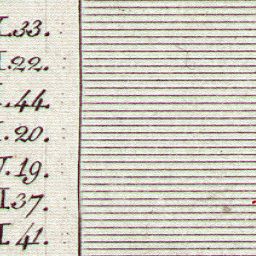 I.33.
I.22.
.44.
I.20.
I.19.
II.37.
I 41.